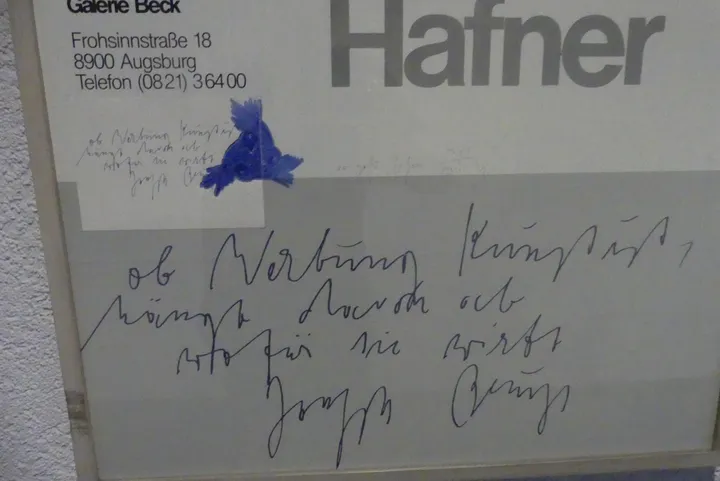 Galerie Beck
Hafner
Frohsinnstraße 18
8900 Augsburg
Telefon (0821) 36400
ob Werbung Kunst ist
hängt davon ab
wofür sie wirbt
Joseph Beuys
ob Werbung Kunst ist,
hängt davon ab
wofür sie wirbt
Joseph Beuys